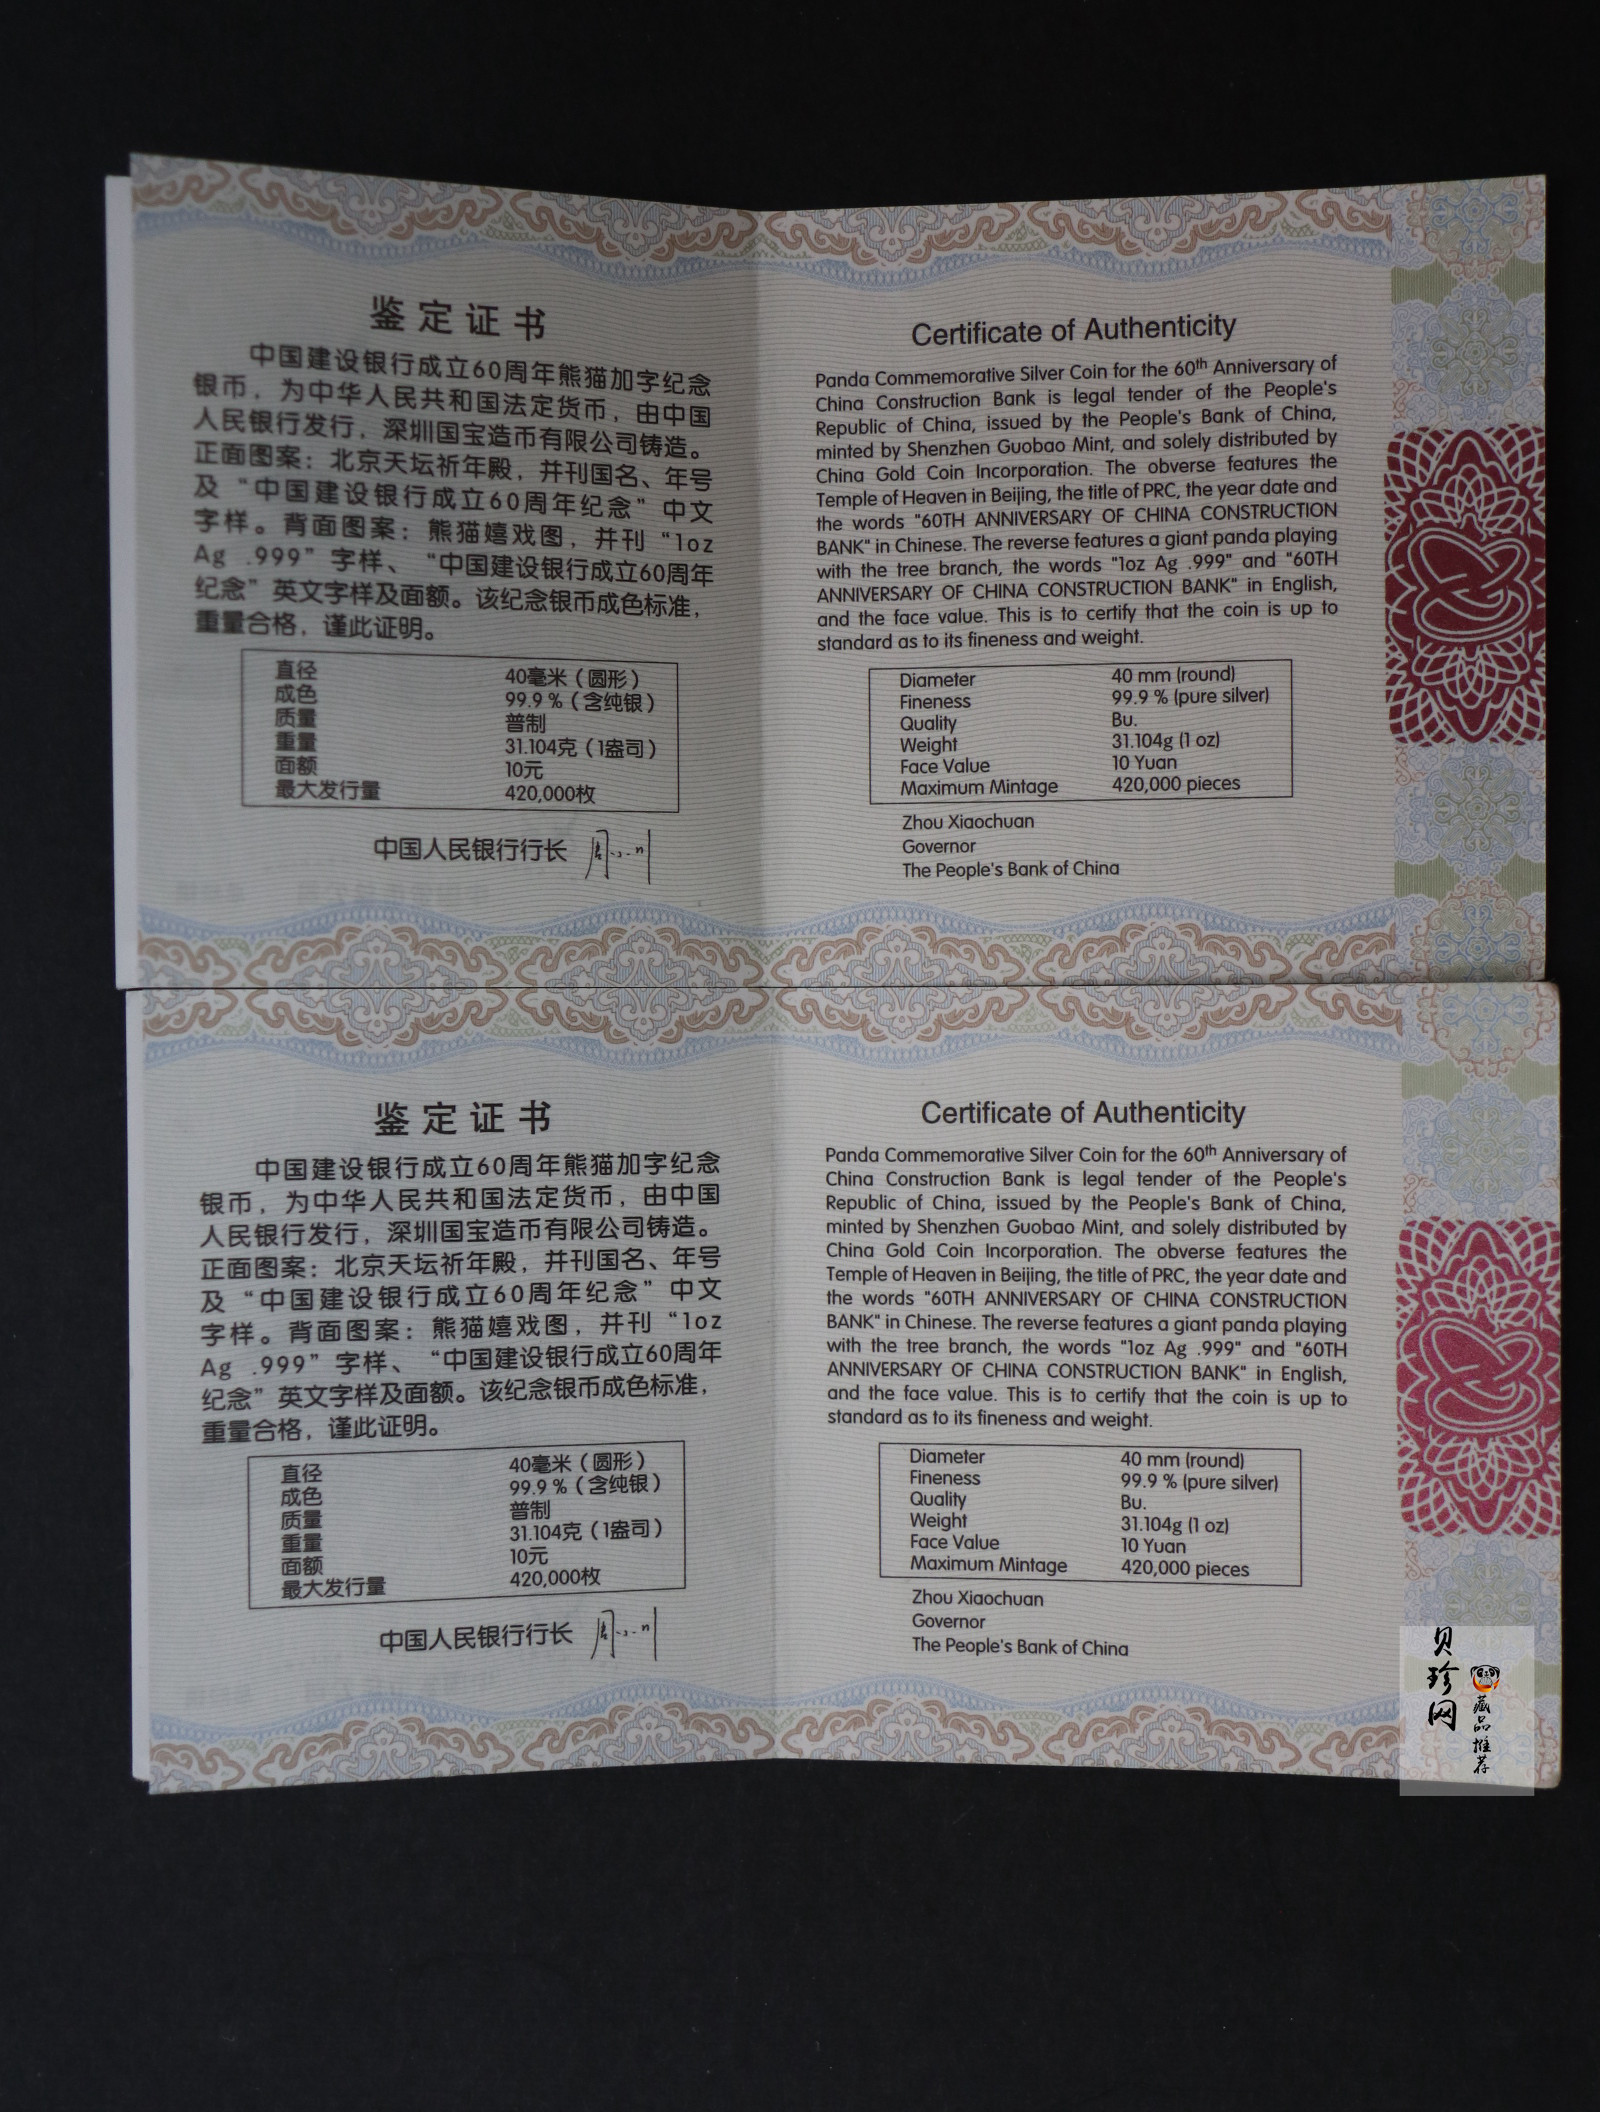 鉴定证书
中国建设银行成立60周年熊猫加字纪念
银币，为中华人民共和国法定货币，由中国
人民银行发行，深圳国宝造币有限公司铸造。
正面图案：北京天坛祈年殿，并刊国名、年号
及“中国建设银行成立60周年纪念”中文
字样。背面图案：熊猫嬉戏图，并刊“1oz
Ag .999”字样、“中国建设银行成立60周年
纪念”英文字样及面额。该纪念银币成色标准，
重量合格，谨此证明。
直径 40毫米（圆形）
成色 99.9 %（含纯银）
质量 普制
重量 31.104克（1盎司）
面额 10元
最大发行量 420,000枚
中国人民银行行长 周小川
Certificate of Authenticity
Panda Commemorative Silver Coin for the 60th Anniversary of
China Construction Bank is legal tender of the People's
Republic of China, issued by the People's Bank of China,
minted by Shenzhen Guobao Mint, and solely distributed by
China Gold Coin Incorporation. The obverse features the
Temple of Heaven in Beijing, the title of PRC, the year date and
the words "60TH ANNIVERSARY OF CHINA CONSTRUCTION
BANK" in Chinese. The reverse features a giant panda playing
with the tree branch, the words "1oz Ag .999" and "60TH
ANNIVERSARY OF CHINA CONSTRUCTION BANK" in English,
and the face value. This is to certify that the coin is up to
standard as to its fineness and weight.
Diameter 40 mm (round)
Fineness 99.9 % (pure silver)
Quality Bu.
Weight 31.104g (1 oz)
Face Value 10 Yuan
Maximum Mintage 420,000 pieces
Zhou Xiaochuan
Governor
The People's Bank of China
鉴定证书
中国建设银行成立60周年熊猫加字纪念
银币，为中华人民共和国法定货币，由中国
人民银行发行，深圳国宝造币有限公司铸造。
正面图案：北京天坛祈年殿，并刊国名、年号
及“中国建设银行成立60周年纪念”中文
字样。背面图案：熊猫嬉戏图，并刊“1oz
Ag .999”字样、“中国建设银行成立60周年
纪念”英文字样及面额。该纪念银币成色标准，
重量合格，谨此证明。
直径 40毫米（圆形）
成色 99.9 %（含纯银）
质量 普制
重量 31.104克（1盎司）
面额 10元
最大发行量 420,000枚
中国人民银行行长 周小川
Certificate of Authenticity
Panda Commemorative Silver Coin for the 60th Anniversary of
China Construction Bank is legal tender of the People's
Republic of China, issued by the People's Bank of China,
minted by Shenzhen Guobao Mint, and solely distributed by
China Gold Coin Incorporation. The obverse features the
Temple of Heaven in Beijing, the title of PRC, the year date and
the words "60TH ANNIVERSARY OF CHINA CONSTRUCTION
BANK" in Chinese. The reverse features a giant panda playing
with the tree branch, the words "1oz Ag .999" and "60TH
ANNIVERSARY OF CHINA CONSTRUCTION BANK" in English,
and the face value. This is to certify that the coin is up to
standard as to its fineness and weight.
Diameter 40 mm (round)
Fineness 99.9 % (pure silver)
Quality Bu.
Weight 31.104g (1 oz)
Face Value 10 Yuan
Maximum Mintage 420,000 pieces
Zhou Xiaochuan
Governor
The People's Bank of China
贝珍网
藏品推荐